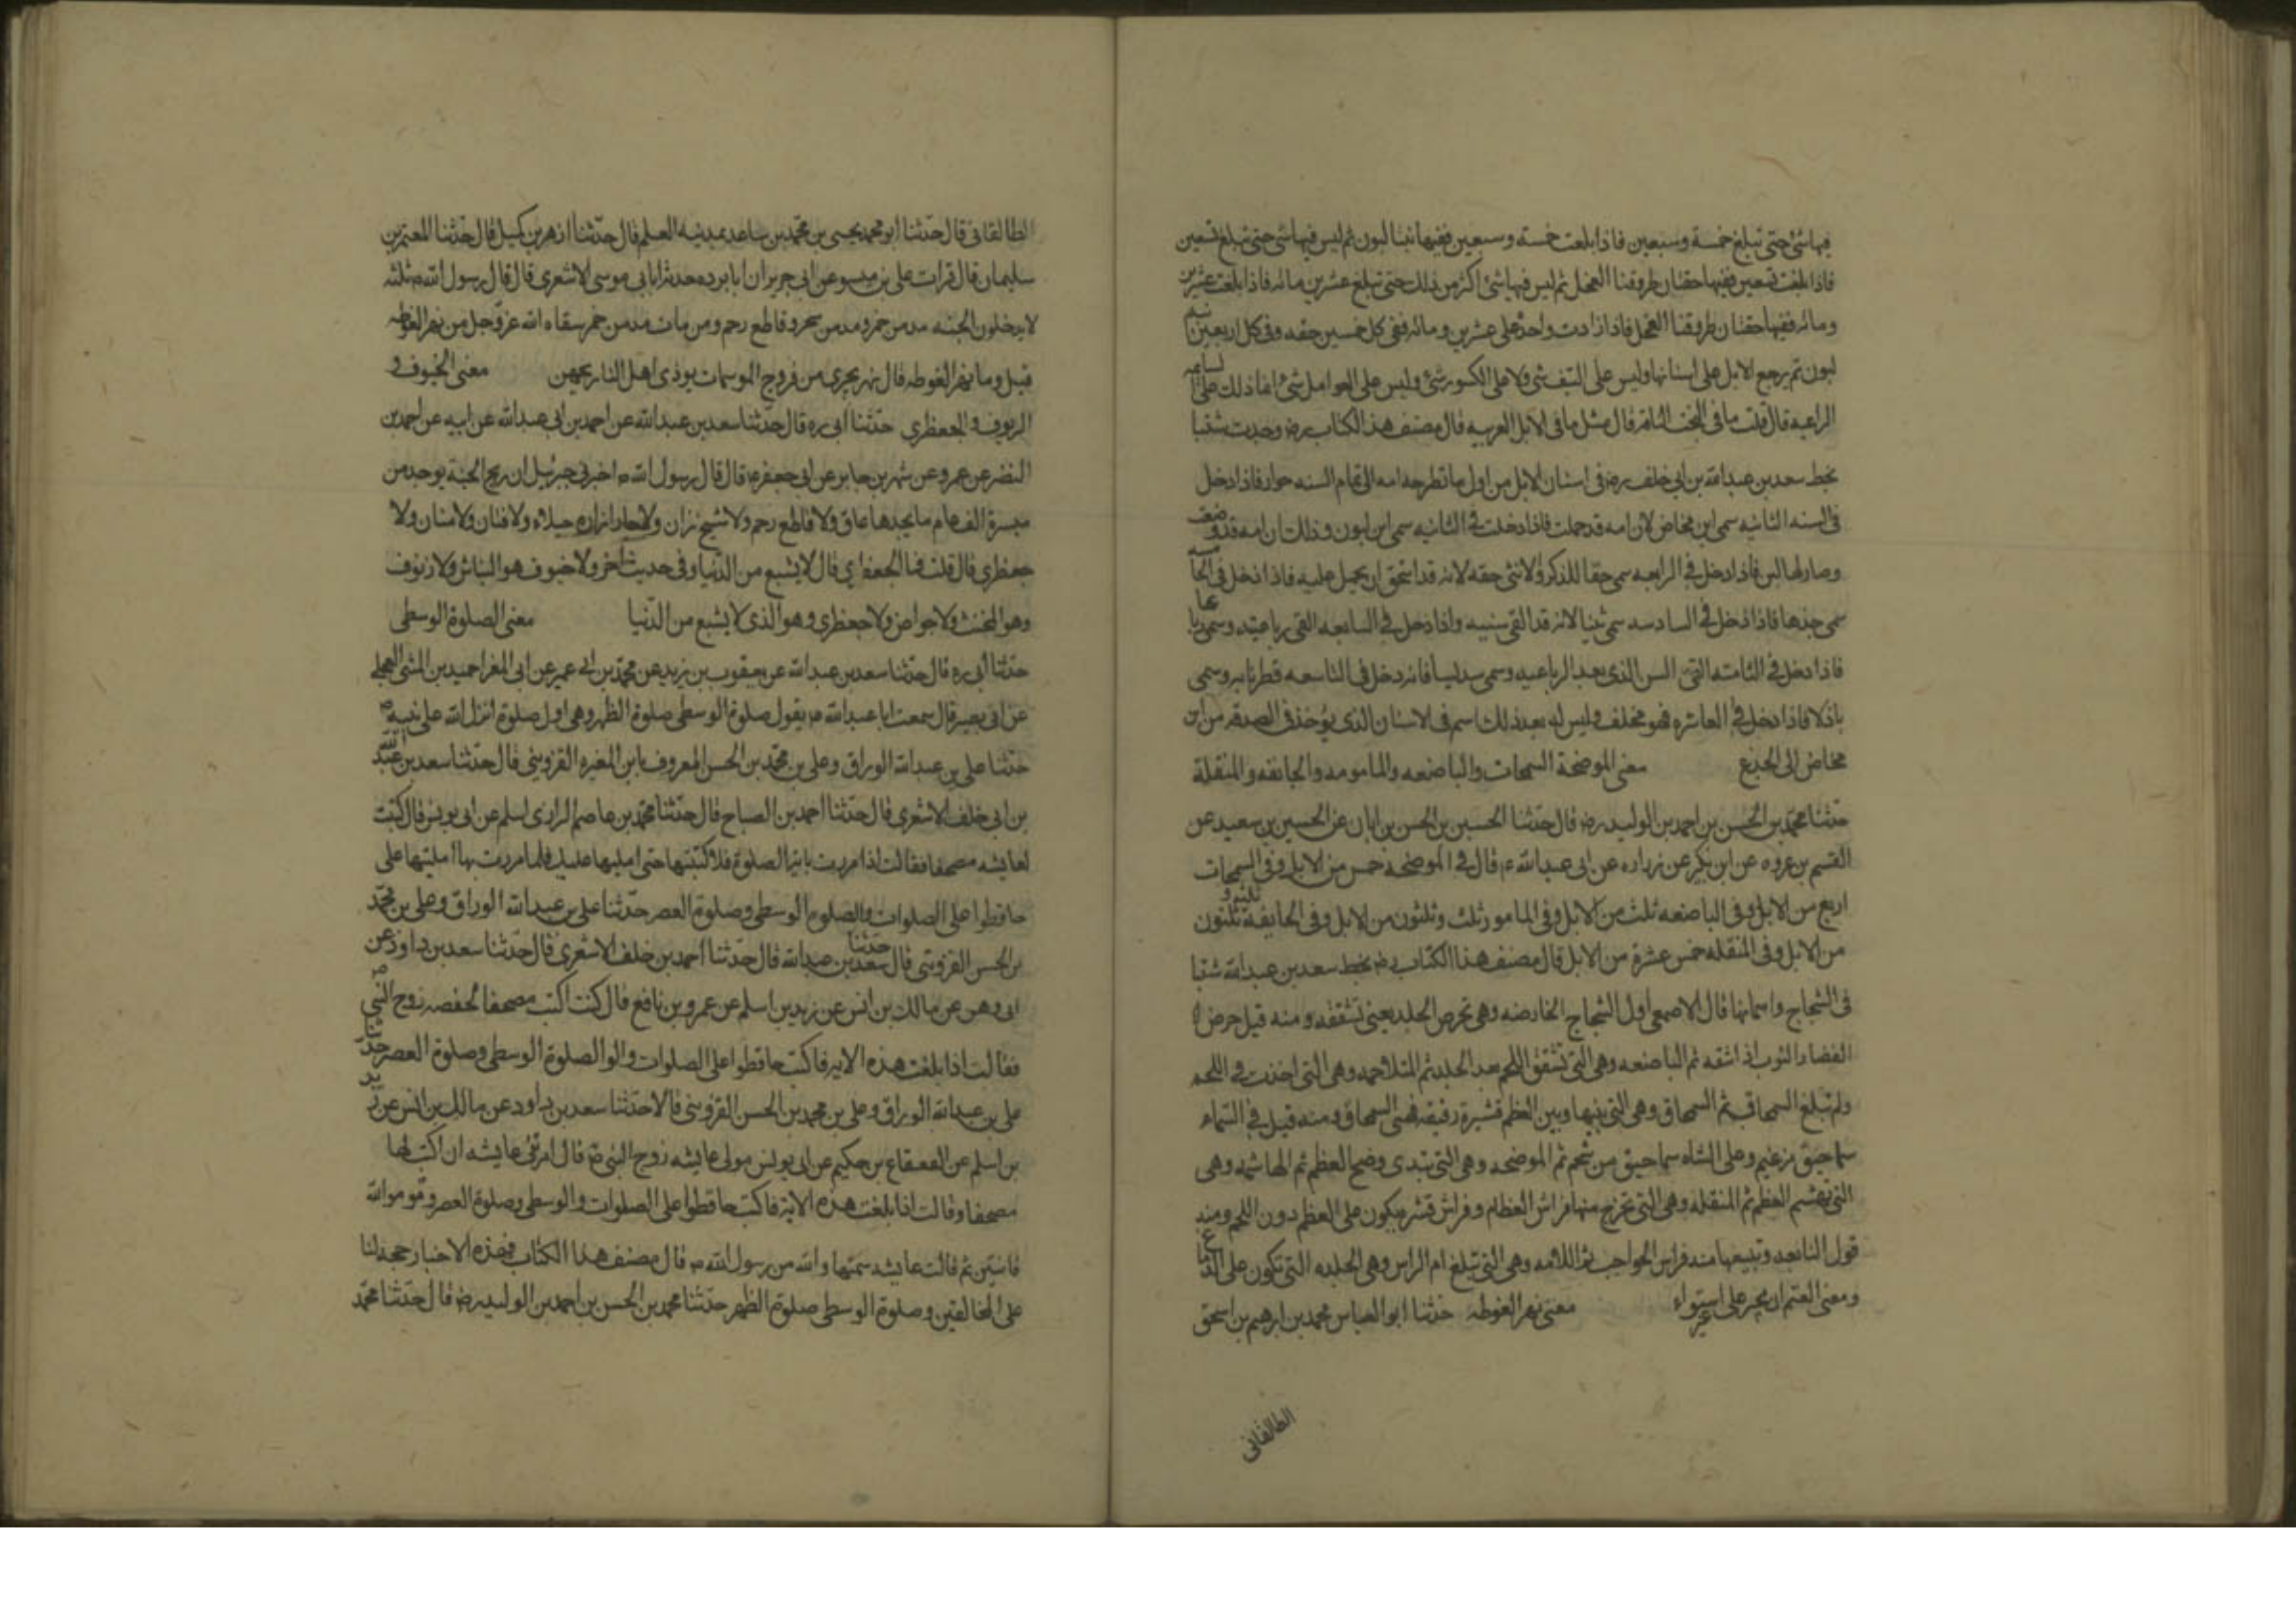 فيها شئ حتى تبلغ خمسة وسبعين فاذا بلغت خمسة وسبعين ففيها بنتا لبون ثم ليس فيها شئ حتى تبلغ تسعين
فاذا بلغت تسعين ففيها حقتان طروقتا الفحل ثم ليس فيها شئ اكثر من ذلك حتى تبلغ عشرين مائه فاذا بلغت عشرين
ومائه ففيها حقتان طروقتا الفحل فاذا زادت واحدة على عشرين ومائه ففى كل خمسين حقه وفى كل اربعين
لبون ثم يرجع الابل على اسنانها وليس على النيف شئ ولا على الكسور شئ وليس على العوامل شئ انما ذلك على السائمه
الراعيه قال قلت ما فى البخت السائمه قال مثل ما فى الابل العربيه قال مصنف هذا الكتاب رضه وجدت مثبتا
بخط سعد بن عبدالله بن ابى خلف رضه فى اسنان الابل من اول ما تطرحه امه الى تمام السنه حوار فاذا دخل
فى السنه الثانيه سمى ابن مخاض لان امه قد حملت فاذا دخلت فى الثانيه سمى ابن لبون وذلك ان امه قد وضعت
وصار لها لبن فاذا دخل فى الرابعه سمى حقا للذكر والانثى حقه لانه قد استحق ان يحمل عليه فاذا دخل فى الخامسه
سمى جذعا فاذا دخل فى السادسه سمى ثنيا لانه قد القى ثنيه واذا دخل فى السابعه القى رباعيته وسمى رباعيا
فاذا دخل فى الثامنه القى السن الذى بعد الرباعيه وسمى سديسا فاذا دخل فى التاسعه فطر نابه وسمى
باذلا فاذا دخل فى العاشره فهو مخلف وليس له بعد ذلك اسم فى الاسنان الذى يؤخذ فى الصدقه من ابن
مخاض الى الجذع معنى الموضحة السمحات والباضعه والمامومه والجائفه والمنقلة
حدثنا محمد بن الحسن بن احمد بن الوليد رضه قال حدثنا الحسين بن الحسن بن ابان عن الحسين بن سعيد عن
القسم بن عروه عن ابن بكير عن زراره عن ابى عبدالله ع قال فى الموضحه خمس من الابل وفى السمحات
اربع من الابل وفى الباضعه ثلث من الابل وفى المامو ثلث وثلثون من الابل وفى الجايفة ثلثون
من الابل وفى المنقله خمس عشرة من الابل قال مصنف هذا الكتاب رضه بخط سعد بن عبدالله مثبتا
فى الشجاج واسمائها قال الاصمعى اول الشجاج الخارصه وهى تحرص الجلد يعنى تشققه ومنه قيل حرص
القصار الثوب اذا شقه ثم الباضعه وهى التى تشقق اللحم بعد الجلد ثم المتلاحمه وهى التى اخذت فى اللحم
ولم تبلغ السمحاق ثم السمحاق وهى التى بينها وبين العظم قشيرة رقيقه فهى السمحاق ومنه قيل فى السماء
سماحيق من غيم وعلى الشاه سماحيق من شحم ثم الموضحه وهى التى تبدى وضح العظم ثم الهاشمه وهى
التى تهشم العظم ثم المنقله وهى التى تخرج منها فراش العظام وفراش قشر يكون على العظم دون اللحم ومنه
قول النابغه وتتبعها منه فراش الحواجب ثم اللامه وهى التى تبلغ ام الراس وهى الجلده التى تكون على الدماغ
ومعنى العثم ان يجبر على غير استواء معنى نهر الغوطه حدثنا ابو العباس محمد بن ابرهيم بن اسحق
الطالقانى
الطالقانى قال حدثنا ابو محمد يحيى بن محمد بن صاعد بمدينه السلم قال حدثنا ازهر بن كميل قال حدثنا المعتمر بن
سليمان قال قرات على بن ميسر عن ابى جرير ان ابا برده حدثه ان ابى موسى الاشعرى قال قال رسول الله ص ثلثه
لا يدخلون الجنه مدمن خمر ومدمن سحر وقاطع رحم ومن مات مدمن خمر سقاه الله عز وجل من نهر الغوطه
قيل وما نهر الغوطه قال نهر يجرى من فروج المومسات يوذى اهل النار ريحهن معنى الخيوف و
الزنوف والجعظرى حدثنا ابى ره قال حدثنا سعد بن عبدالله عن احمد بن ابى عبدالله عن ابيه عن احمد بن
النضر عن عمرو عن شمر بن جابر عن ابى جعفر ع قال قال رسول الله ص اخبرنى جبرئيل ان ريح الجنة يوجد من
مسيرة الف عام ما يجدها عاق ولا قاطع رحم ولا شيخ زان ولا جار ازاره خيلاء ولا فتان ولا منان ولا
جعظرى قال قلت فما الجعظرى قال لا يشبع من الدنيا وفى حديث آخر ولا خيوف هو النباش ولا زنوف
وهو المخنث ولا جواض ولا جعظرى وهو الذى لا يشبع من الدنيا معنى الصلوة الوسطى
حدثنا ابى ره قال حدثنا سعد بن عبدالله عن يعقوب بن يزيد عن محمد بن ابى عمير عن ابى المغرا حميد بن المثنى العجلى
عن ابى بصير قال سمعت ابا عبدالله ع يقول صلوة الوسطى صلوة الظهر وهى اول صلوة انزل الله على نبيه ص
حدثنا على بن عبدالله الوراق وعلى بن محمد بن الحسن المعروف بابن المغيره القزوينى قال حدثنا سعد بن عبد الله
بن ابى خلف الاشعرى قال حدثنا احمد بن الصباح قال حدثنا محمد بن عاصم الرازى اسلم عن ابى يونس قال كتبت
لعايشه مصحفا فقالت اذا مررت باية الصلوة فلا تكتبها حتى امليها عليك فلما مررت بها املتها على
حافظوا على الصلوات والصلوة الوسطى وصلوة العصر حدثنا على بن عبدالله الوراق وعلى بن محمد
بن الحسن القزوينى قال حدثنا سعد بن عبدالله قال حدثنا احمد بن خلف الاشعرى قال حدثنا سعد بن داود عن
ابى وهر عن مالك بن انس عن زيد بن اسلم عن عمرو بن نافع قال كنت اكتب مصحفا لحفصه زوج النبى ص
فقالت اذا بلغت هذه الايه فاكتب حافظوا على الصلوات والو الصلوة الوسطى وصلوة العصر حدثنا
على بن عبدالله الوراق وعلى بن محمد بن الحسن القزوينى قالا حدثنا سعد بن داود عن مالك بن انس عن زيد
بن اسلم عن القعقاع بن حكيم عن ابى يونس مولى عايشه زوج النبى ص قال امرتنى عايشه ان اكتب لها
مصحفا وقالت اذا بلغت هذه الاية فاكتب حافظوا على الصلوات والوسطى وصلوة العصر وقوموا لله
قانتين ثم قالت عايشه سمعتها والله من رسول الله ص قال مصنف هذا الكتاب فهذه الاخبار حجه لنا
على المخالفين وصلوة الوسطى صلوة الظهر حدثنا محمد بن الحسن بن احمد بن الوليد رضه قال حدثنا محمد